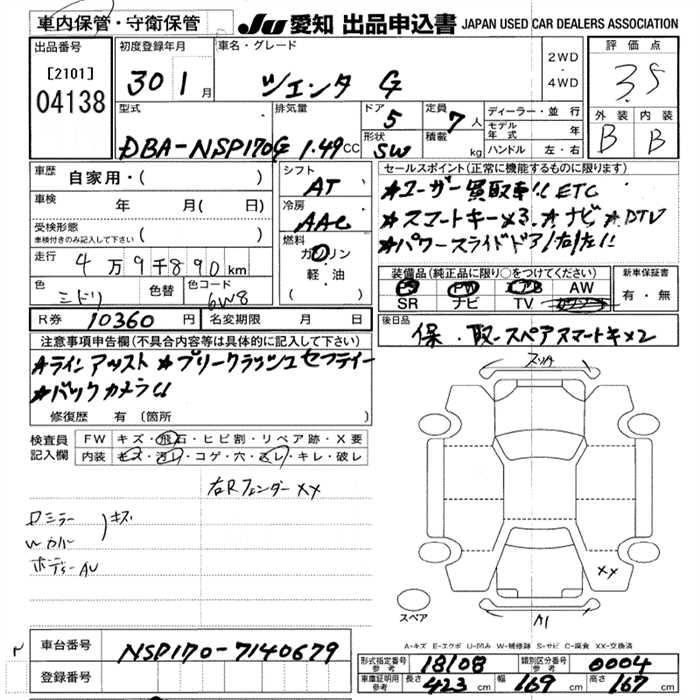 車内保管・守衛保管 JU 愛知 出品申込書 JAPAN USED CAR DEALERS ASSOCIATION
出品番号 [2101] 04138
初度登録年月 30 1月
車名・グレード シエンタ G
2WD・4WD
評価点 3.5
外装 B 内装 B
型式 DBA-NSP170G
排気量 1.49 CC
ドア 5
形状 SW
定員 7人
積載 kg
ディーラー・並行
モデル年式 年
ハンドル 左・右
車歴 自家用・( )
車検 年 月( 日)
受検形態 車検付きのみ記入して下さい ( )
走行 4万9千890km
色 ミドリ 色替 色コード 6W8
シフト AT
冷房 AAC
燃料 ガソリン
軽・油
( )
セールスポイント(正常に機能するものに限ります)
★ユーザー買取車!! ETC
★スマートキー×3. ★ナビ ★DTV
★パワースライドドア/右/左!!
装備品(純正品に限り○をつけてください)
PS PW エアB AW
SR ナビ TV
新車保証書 有・無
R券 10360 円 名変期限 月 日
後日品 保・取・スペアスマートキー×2
注意事項申告欄(不具合内容等は具体的に記入して下さい)
★ラインアシスト ★プリークラッシュセーフティー
★バックカメラ!!
修復歴 有(箇所 )
検査員記入欄 FW キズ・飛石・ヒビ割・リペア跡・X要
内装 キズ・汚レ・コゲ・穴・スレ・キレ・破レ
右Rフェンダー XX
ロミラー
Wカバー ) キズ
ボディーAU
スリキ
XX
A1
スペア
A-キズ E-エクボ U-凹み W-補修跡 S-サビ C-腐食 XX-交換済
車台番号 NSP170-7140679
登録番号
形式指定番号 参考 18108 類別区分番号 参考 0004
車庫証明用 参考 長さ 423 cm 幅 169 cm 高さ 167 cm